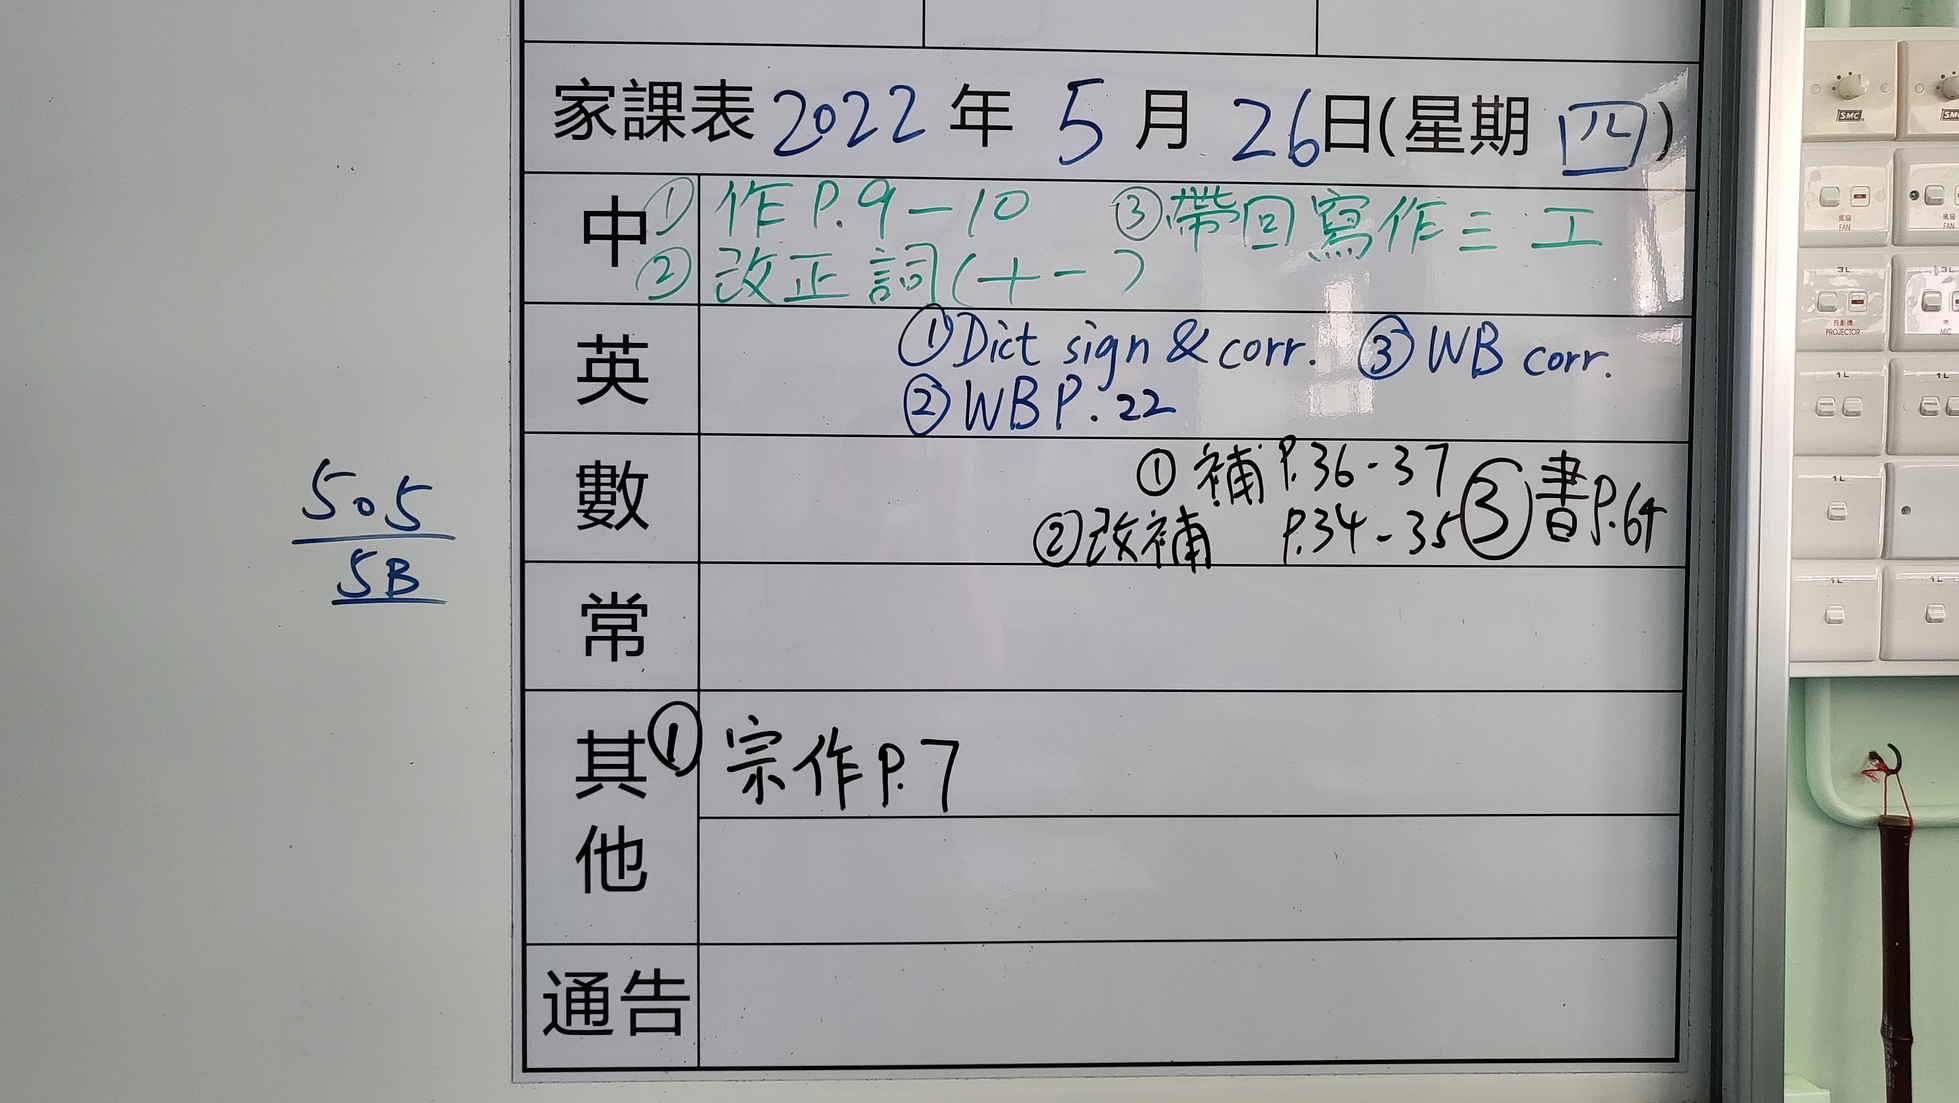 家課表 2022 年 5 月 26日(星期 四)
中 ① 作 P.9-10 ③帶回寫作三 工
② 改正詞(十一)
英 ①Dict sign & corr. ③ WB corr.
②WB P.22
數 ① 補 P.36-37 ③書P.64
②改補 P.34-35
505
5B
常
其他 ① 宗作P.7
通告
SMC
風扇
FAN
FAN
3L
3L
投影機
PROJECTOR
MIC
1L
1L
1L
1L
1L